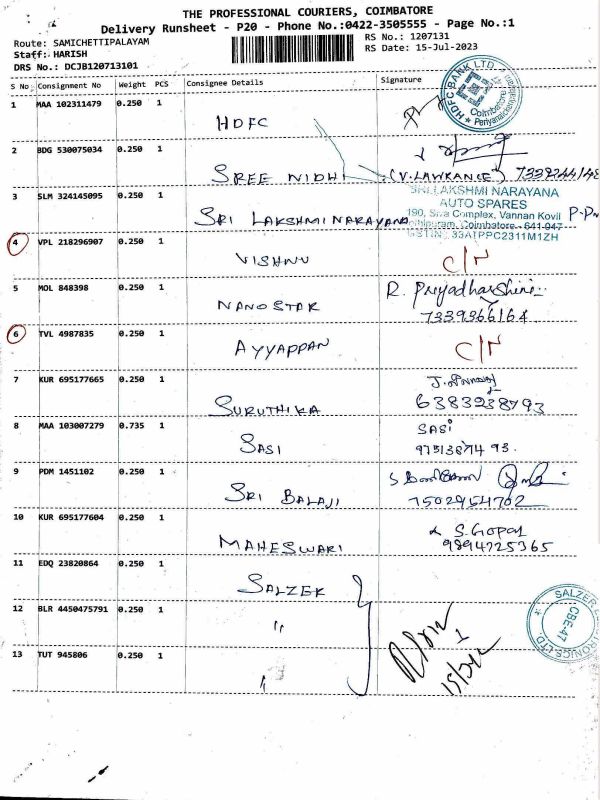 THE PROFESSIONAL COURIERS, COIMBATORE
Delivery Runsheet - P20 - Phone No.:0422-3505555 - Page No.:1
Route: SAMICHETTIPALAYAM RS No.: 1207131
Staff: HARISH RS Date: 15-Jul-2023
DRS No.: DCJB120713101
S No Consignment No Weight PCS Consignee Details Signature
1 MAA 102311479 0.250 1 HDFC
HDFC BANK LTD. Coimbatore
2 BDG 530075034 0.250 1 SREE NIDHI (V. LAWRANCE)
3 SLM 324145095 0.250 1 SRI LAKSHMI NARAYANA
SRI LAKSHMI NARAYANA
AUTO SPARES
190, Siva Complex, Vannan Kovil
Coimbatore - 641 047
GSTIN: 33ATPPC2311M1ZH
4 VPL 218296907 0.250 1 VISHNU C/N
5 MOL 848398 0.250 1 NANO STAR R. Priyadharshini
7339366164
6 TVL 4987835 0.250 1 AYYAPPAN C/N
7 KUR 695177665 0.250 1 SURUTHIKA
6383238793
8 MAA 103007279 0.735 1 SASI SASI
9 PDM 1451102 0.250 1 SRI BALAJI
7502954702
10 KUR 695177604 0.250 1 MAHESWARI S. Gopal
9894725365
11 EDQ 23820864 0.250 1 SALZER
12 BLR 4450475791 0.250 1 "
13 TUT 945806 0.250 1 "
SALZER CBE-47